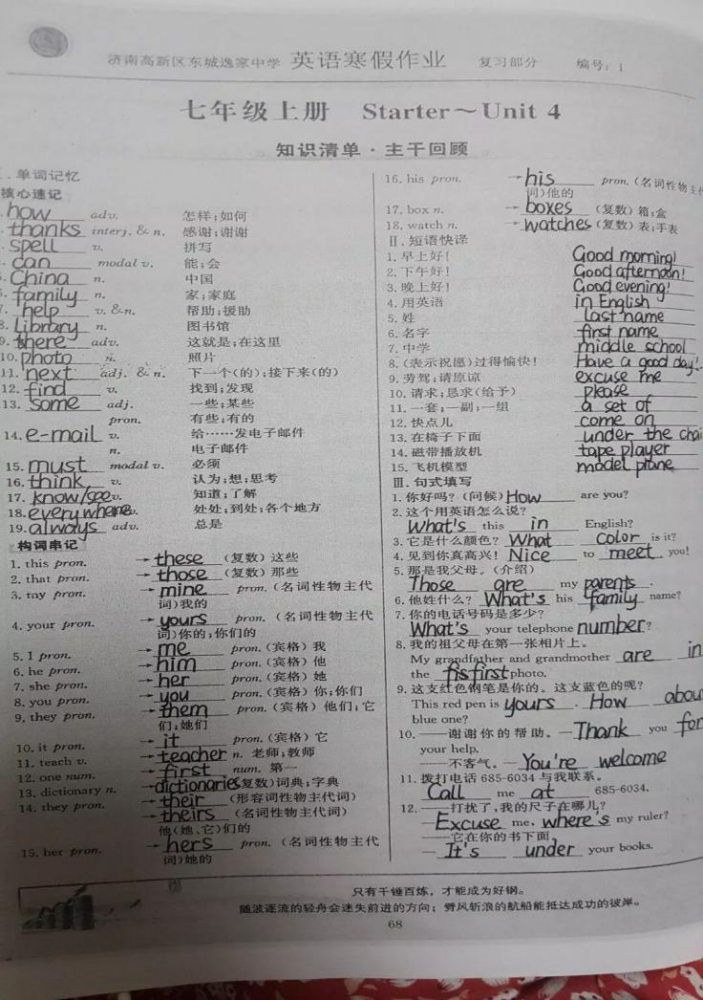 济南高新区东城逸家中学 英语寒假作业 复习部分 编号:1
七年级上册 Starter～Unit 4
知识清单·主干回顾
. 单词记忆
核心速记
. how adv. 怎样;如何
. thanks interj. & n. 感谢;谢谢
. spell v. 拼写
. can modal v. 能;会
. China n. 中国
. family n. 家;家庭
. help v. & n. 帮助;援助
8. Library n. 图书馆
9. there adv. 这就是;在这里
10. photo n. 照片
11. next adj. & n. 下一个(的);接下来(的)
12. find v. 找到;发现
13. some adj. 一些;某些
pron. 有些;有的
14. e-mail v. 给……发电子邮件
n. 电子邮件
15. must modal v. 必须
16. think v. 认为;想;思考
17. know/see v. 知道;了解
18. everywhere 处处;到处;各个地方
19. always adv. 总是
构词串记
1. this pron. → these (复数)这些
2. that pron. → those (复数)那些
3. my pron. → mine pron.(名词性物主代
词)我的
4. your pron. → yours pron.(名词性物主代
词)你的;你们的
5. I pron. → me pron.(宾格)我
6. he pron. → him pron.(宾格)他
7. she pron. → her pron.(宾格)她
8. you pron. → you pron.(宾格)你;你们
9. they pron. → them pron.(宾格)他们;它
们;她们
10. it pron. → it pron.(宾格)它
11. teach v. → teacher n. 老师;教师
12. one num. → first num. 第一
13. dictionary n. → dictionaries(复数)词典;字典
14. they pron. → their (形容词性物主代词)
→ theirs (名词性物主代词)
他(她、它)们的
15. her pron. → hers pron.(名词性物主代
词)她的
16. his pron. → his pron.(名词性物主代
词)他的
17. box n. → boxes (复数)箱;盒
18. watch n. → watches (复数)表;手表
Ⅱ. 短语快译
1. 早上好! Good morning!
2. 下午好! Good afternoon!
3. 晚上好! Good evening!
4. 用英语 in English
5. 姓 last name
6. 名字 first name
7. 中学 middle school
8. (表示祝愿)过得愉快! Have a good day!
9. 劳驾;请原谅 excuse me
10. 请求;恳求(给予) please
11. 一套;一副;一组 a set of
12. 快点儿 come on
13. 在椅子下面 under the chai
14. 磁带播放机 tape player
15. 飞机模型 model plane
Ⅲ. 句式填写
1. 你好吗?(问候) How are you?
2. 这个用英语怎么说?
What's this in English?
3. 它是什么颜色? What color is it?
4. 见到你真高兴! Nice to meet you!
5. 那是我父母。(介绍)
Those are my parents.
6. 他姓什么? What's his family name?
7. 你的电话号码是多少?
What's your telephone number?
8. 我的祖父母在第一张相片上。
My grandfather and grandmother are in
the first photo.
9. 这支红色钢笔是你的。这支蓝色的呢?
This red pen is yours. How abou
blue one?
10. —谢谢你的帮助。—Thank you for
your help.
—不客气。—You're welcome
11. 拨打电话 685-6034 与我联系。
Call me at 685-6034.
12. —打扰了,我的尺子在哪儿?
—Excuse me, where's my ruler?
—它在你的书下面。
— It's under your books.
只有千锤百炼,才能成为好钢。
随波逐流的轻舟会迷失前进的方向;劈风斩浪的航船能抵达成功的彼岸。
68